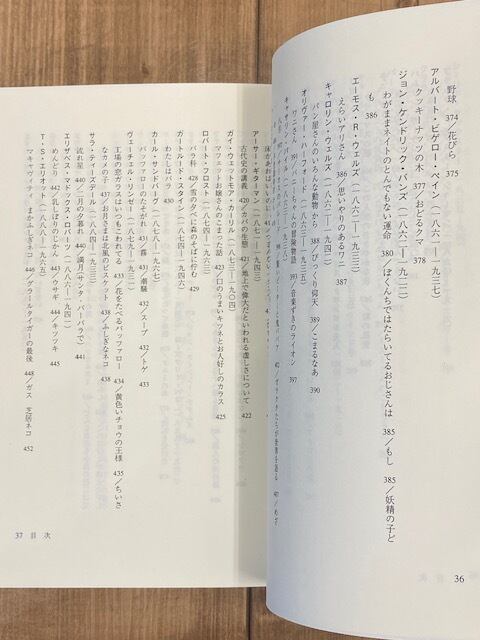 野球 374／花びら 375
アルバート・ビゲロー・ペイン（一八六一―一九三七）
クッキーナッツの木 377／おどるクマ 378
ジョン・ケンドリック・バンズ（一八六二―一九二二）
わがままネイトのとんでもない運命 380／ぼくんちではたらいてるおじさんは 385／もし 385／妖精の子ど
も 386
エーモス・R・ウェルズ（一八六二―一九三三）
えらいアリさん 386／思いやりのあるワニ 387
キャロリン・ウェルズ（一八六二―一九四二）
パン屋さんのいろんな動物から 388／びっくり仰天 389／こまるなあ 390
オリヴァー・ハーフォード（一八六三―一九三五）
ちゃんの冒険物語 393／音楽ずきのライオン 397
アーサー・ギターマン（一八七一―一九四三）
古代史の講義 420／カバの生態 421／地上で偉大だといわれる虚しさについて 422
ガイ・ウェットモア・カーリル（一八七三―一九〇四）
マフェットお嬢さんのこまった話 423／口のうまいキツネとお人好しのカラス 425
ロバート・フロスト（一八七四―一九六三）
バラ科 428／雪の夕べに森のそばに佇む 429
ガートルード・スタイン（一八七四―一九四六）
わたしはローズ 430
カール・サンドバーグ（一八七八―一九六七）
バッファローのたそがれ 431／霧 431／潮騒 432／スープ 432／トゲ 433
ヴェーチェル・リンゼー（一八七九―一九三一）
工場の窓ガラスはいつもこわれてる 433／花をたべるバッファロー 434／黄色いチョウの王様 435／ちいさ
なカメの子 437／お月さまは北風のビスケット 438／ふしぎなネコ 438
サラ・ティーズデール（一八八四―一九三三）
流れ星 440／二月の夕暮れ 440／満月（サンタ・バーバラで） 441
エリザベス・マドックス・ロバーツ（一八八六―一九四一）
めんどり 442／乳しぼりのじかん 443／ウサギ 444／キツツキ 445
T・S・エリオット（一八八八―一九六五）
マキャヴィティ　まかふしぎネコ 446／グラールタイガーの最後 448／ガス　芝居ネコ 452
36
37 目次